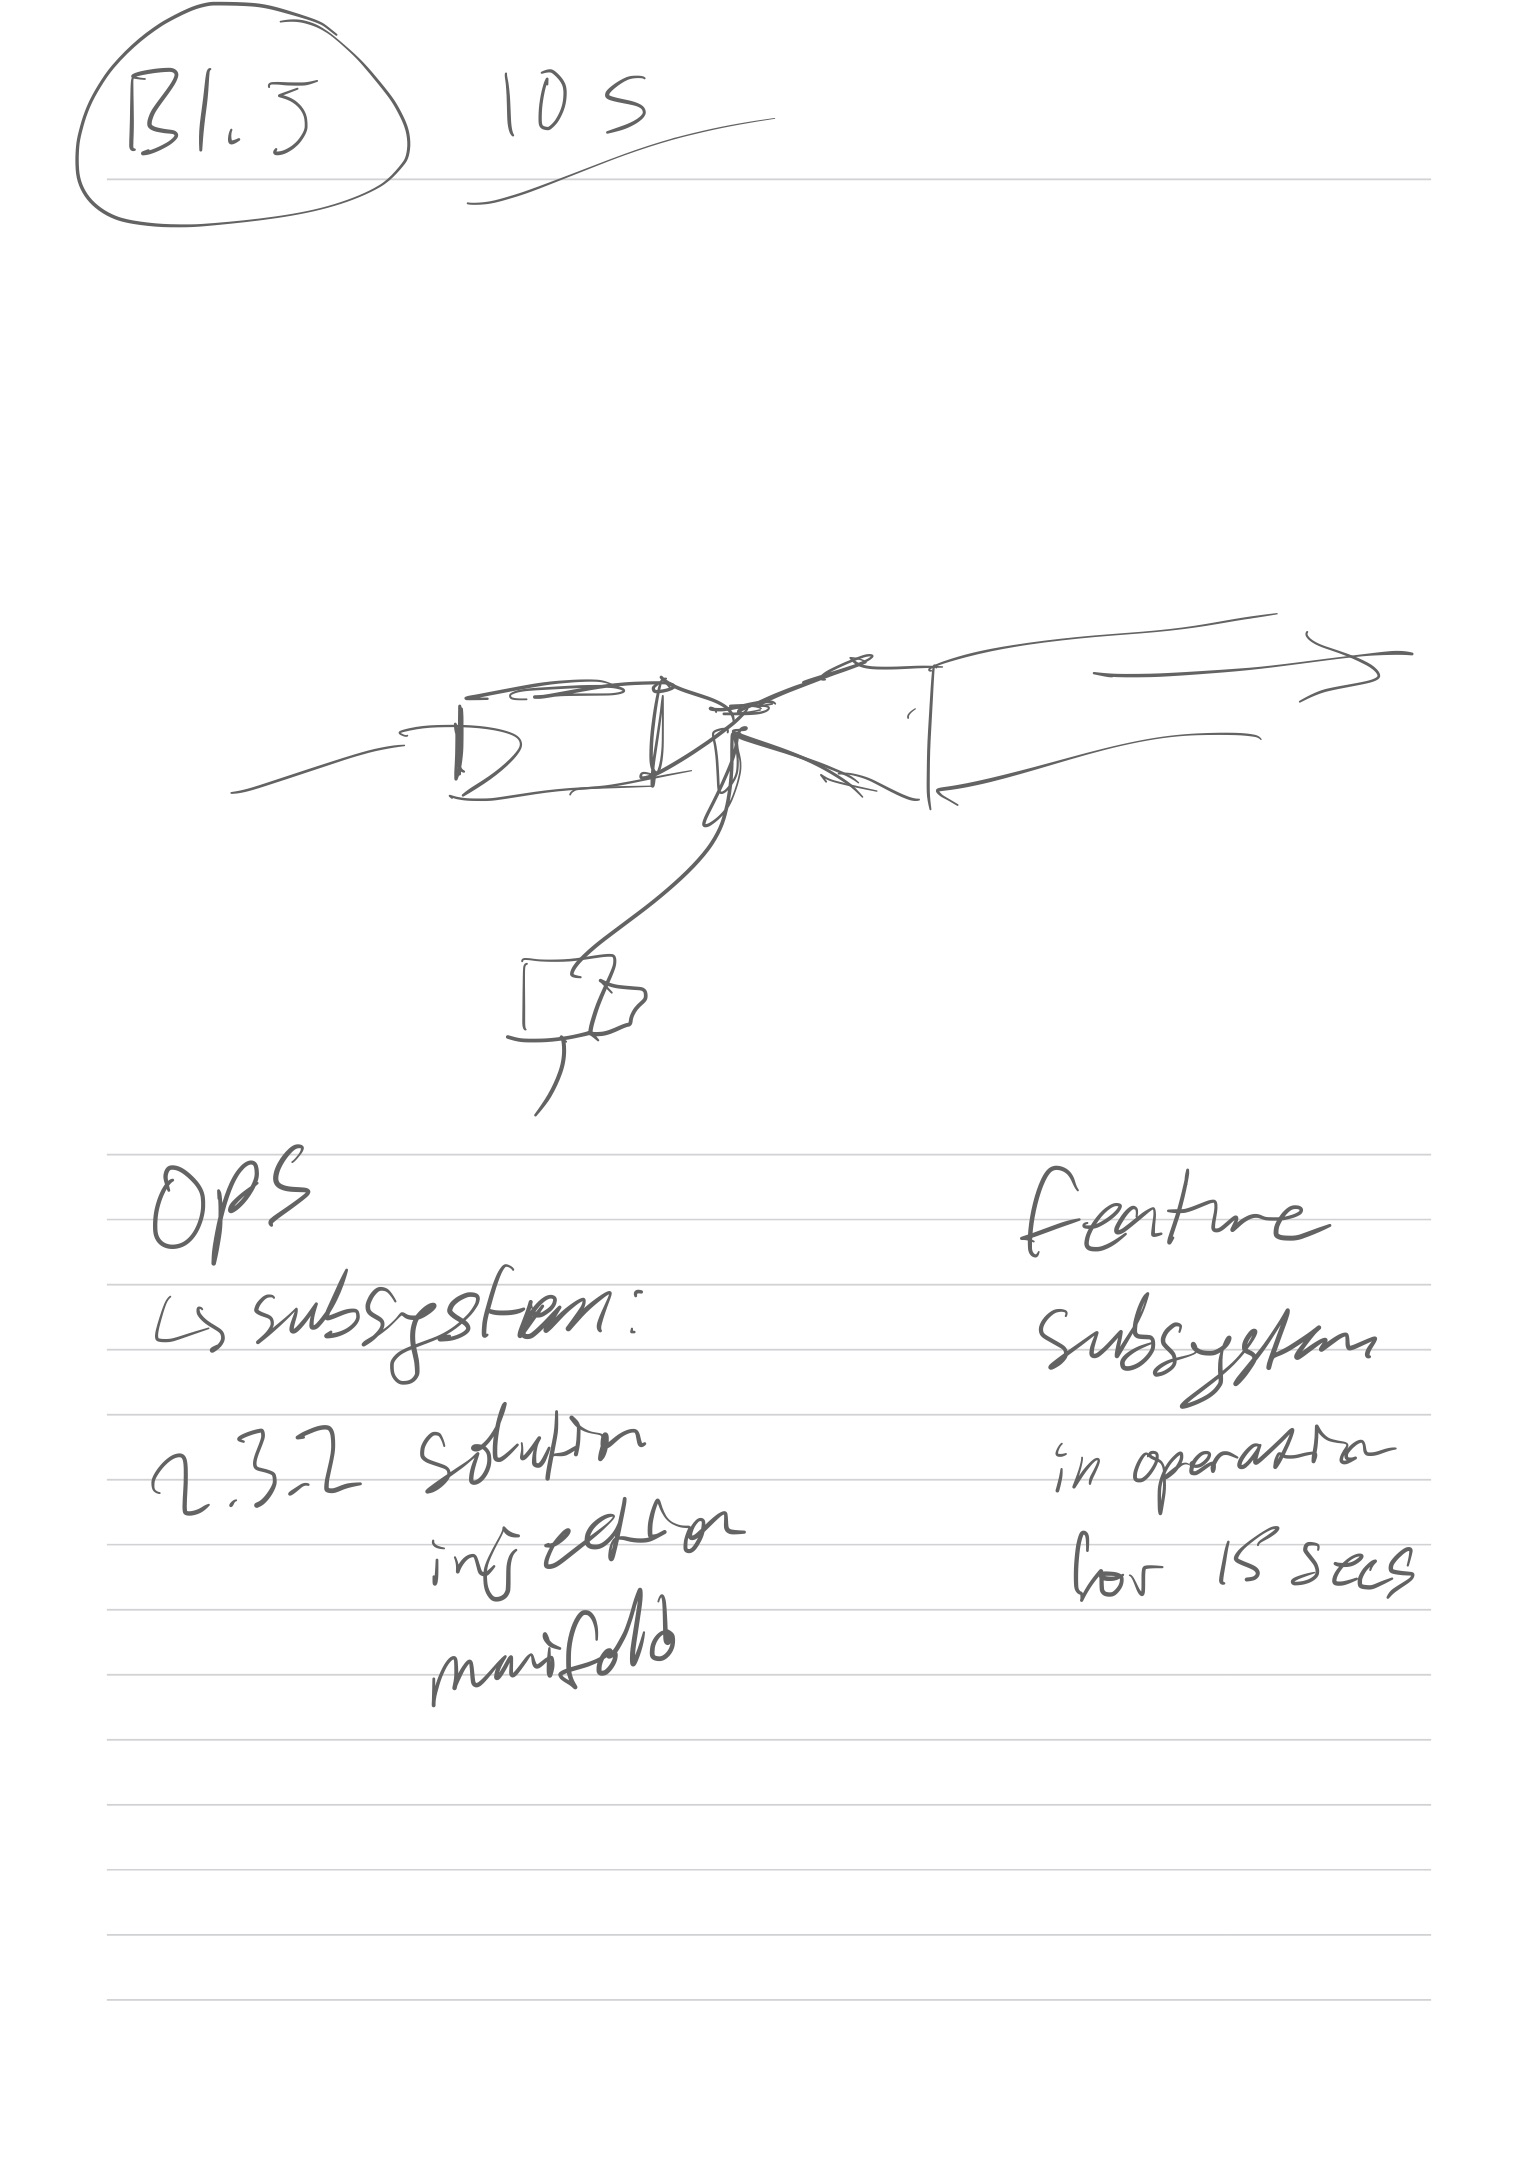 B1.5 10 S
Ops
↳ subsystem:
2.3.2 solution
injection
manifold
Feature
subsystem
in operation
for 15 secs